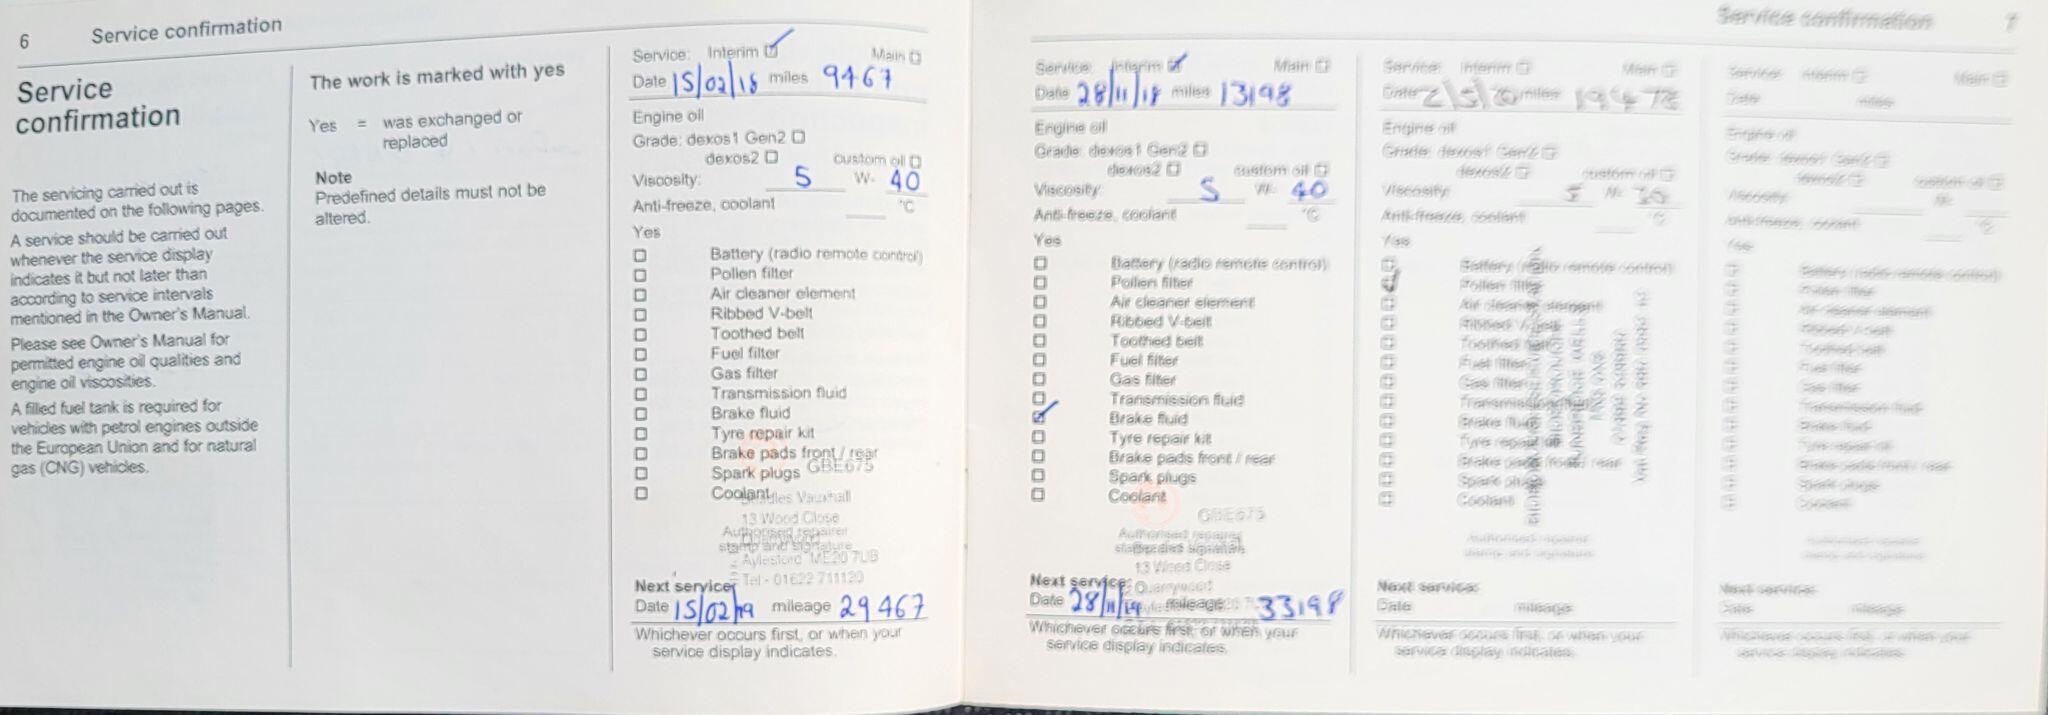 6 Service confirmation
Service
confirmation
The servicing carried out is
documented on the following pages.
A service should be carried out
whenever the service display
indicates it but not later than
according to service intervals
mentioned in the Owner's Manual.
Please see Owner's Manual for
permitted engine oil qualities and
engine oil viscosities.
A filled fuel tank is required for
vehicles with petrol engines outside
the European Union and for natural
gas (CNG) vehicles.
The work is marked with yes
Yes = was exchanged or
replaced
Note
Predefined details must not be
altered.
Service: Interim Main
Date 15/02/18 miles 9467
Engine oil
Grade: dexos1 Gen2
dexos2 custom oil
Viscosity: 5 W- 40
Anti-freeze, coolant °C
Yes
Battery (radio remote control)
Pollen filter
Air cleaner element
Ribbed V-belt
Toothed belt
Fuel filter
Gas filter
Transmission fluid
Brake fluid
Tyre repair kit
Brake pads front / rear
Spark plugs GBE675
Coolant
Beadles Vauxhall
13 Wood Close
Authorised repairer
stamp and signature
Aylesford ME20 7UB
Tel - 01622 711120
Next service:
Date 15/02/19 mileage 29467
Whichever occurs first, or when your
service display indicates.
Service confirmation 7
Service: Interim Main
Date 28/11/18 miles 13198
Engine oil
Grade: dexos1 Gen2
dexos2 custom oil
Viscosity: 5 W- 40
Anti-freeze, coolant °C
Yes
Battery (radio remote control)
Pollen filter
Air cleaner element
Ribbed V-belt
Toothed belt
Fuel filter
Gas filter
Transmission fluid
Brake fluid
Tyre repair kit
Brake pads front / rear
Spark plugs
Coolant
GBE675
Authorised repairer
13 Wood Close
Quarrywood
Next service:
Date 28/11/19 mileage 33198
Whichever occurs first, or when your
service display indicates.
Service: Interim Main
Date miles
Engine oil
Grade: dexos1 Gen2
dexos2 custom oil
Viscosity: 5 W- 30
Anti-freeze, coolant °C
Yes
Battery (radio remote control)
Pollen filter
Air cleaner element
Ribbed V-belt
Toothed belt
Fuel filter
Gas filter
Transmission fluid
Brake fluid
Tyre repair kit
Brake pads front / rear
Spark plugs
Coolant
Authorised repairer
stamp and signature
Next service:
Date mileage
Whichever occurs first, or when your
service display indicates.
Service: Interim Main
Date miles
Engine oil
Grade: dexos1 Gen2
dexos2 custom oil
Viscosity: W-
Anti-freeze, coolant °C
Yes
Battery (radio remote control)
Pollen filter
Air cleaner element
Ribbed V-belt
Toothed belt
Fuel filter
Gas filter
Transmission fluid
Brake fluid
Tyre repair kit
Brake pads front / rear
Spark plugs
Coolant
Authorised repairer
stamp and signature
Next service:
Date mileage
Whichever occurs first, or when your
service display indicates.